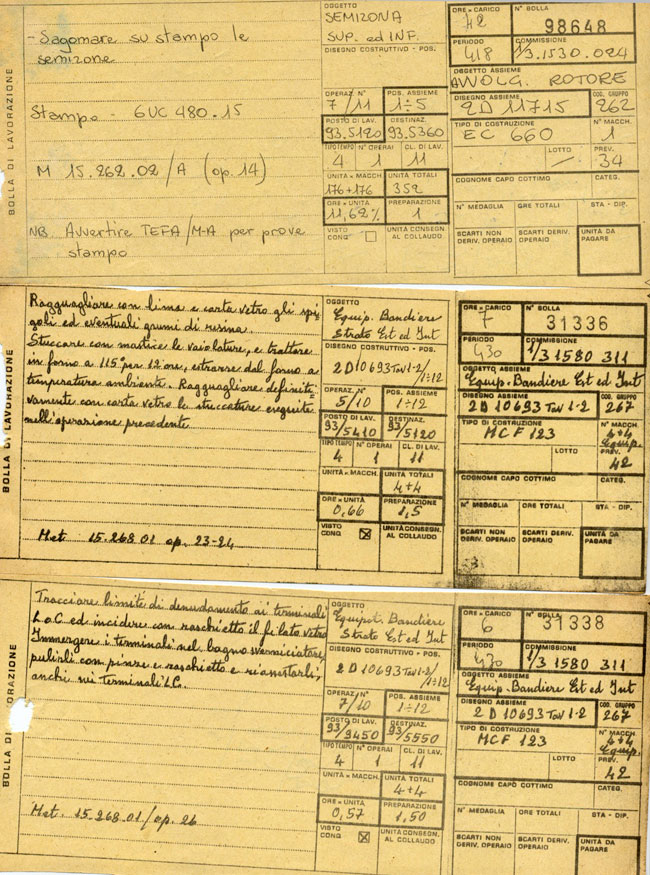 BOLLA DI LAVORAZIONE
- Sagomare su stampo le
semizone
Stampo - 6UC 480.15
M 15.262.02/A (op. 14)
NB Avvertire TEFA/M-A per prove
stampo
OGGETTO
SEMIZONA
SUP. ed INF.
DISEGNO COSTRUTTIVO - POS.
OPERAZ. N° POS. ASSIEME
7/11 1÷5
POSTO DI LAV. DESTINAZ.
93.5120 93.5360
TIPO TEMPO N° OPERAI CL. DI LAV.
4 1 11
UNITÀ x MACCH. UNITÀ TOTALI
176+176 352
ORE x UNITÀ PREPARAZIONE
11,62% 1
VISTO CONQ. UNITÀ CONSEGN.
AL COLLAUDO
ORE x CARICO N° BOLLA
42 98648
PERIODO COMMISSIONE
418 1/3.1530.024
OGGETTO ASSIEME
AVVOLG. ROTORE
DISEGNO ASSIEME COD. GRUPPO
2D 11715 262
TIPO DI COSTRUZIONE N° MACCH.
EC 660 1
LOTTO PREV.
34
COGNOME CAPO COTTIMO CATEG.
N° MEDAGLIA ORE TOTALI STA - DIP.
SCARTI NON
DERIV. OPERAIO SCARTI DERIV.
OPERAIO UNITÀ DA
PAGARE
BOLLA DI LAVORAZIONE
Ragguagliare con lima e carta vetro gli spi-
goli ed eventuali grumi di resina.
Stuccare con mastice le vaiolature, e trattare
in forno a 115° per 12 ore, estrarre dal forno a
temperatura ambiente. Ragguagliare definiti=
vamente con carta vetro le stuccature eseguite
nell'operazione precedente.
Met. 15.268.01 op. 23-24
OGGETTO
Equip. Bandiere
Strato Est ed Int
DISEGNO COSTRUTTIVO - POS.
2D10693 Tav 1-2/
1÷12
OPERAZ. N° POS. ASSIEME
5/10 1÷12
POSTO DI LAV. DESTINAZ.
93/5410 93/5120
TIPO TEMPO N° OPERAI CL. DI LAV.
4 1 11
UNITÀ x MACCH. UNITÀ TOTALI
4+4
ORE x UNITÀ PREPARAZIONE
0,66 1,5
VISTO CONQ. UNITÀ CONSEGN.
AL COLLAUDO
ORE x CARICO N° BOLLA
7 31336
PERIODO COMMISSIONE
430 1/3 1580 311
OGGETTO ASSIEME
Equip. Bandiere Est ed Int
DISEGNO ASSIEME COD. GRUPPO
2D 10693 Tav 1-2 267
TIPO DI COSTRUZIONE N° MACCH.
MCF 123 4+4
Equip.
LOTTO PREV.
42
COGNOME CAPO COTTIMO CATEG.
N° MEDAGLIA ORE TOTALI STA - DIP.
SCARTI NON
DERIV. OPERAIO SCARTI DERIV.
OPERAIO UNITÀ DA
PAGARE
BOLLA DI LAVORAZIONE
Tracciare limite di denudamento ai terminali
L.o C ed incidere con raschietto il filato vetro
Immergere i terminali nel bagno sverniciatore,
pulirli con pinze e raschietto e
anchi sui terminali L.C.
Met. 15.268.01/op. 26
OGGETTO
Equipot. Bandiere
Strato Est ed Int
DISEGNO COSTRUTTIVO - POS.
2D10693 Tav 1-2/
1÷12
OPERAZ. N° POS. ASSIEME
7/10 1÷12
POSTO DI LAV. DESTINAZ.
93/9450 93/5550
TIPO TEMPO N° OPERAI CL. DI LAV.
4 1 11
UNITÀ x MACCH. UNITÀ TOTALI
4+4
ORE x UNITÀ PREPARAZIONE
0,57 1,50
VISTO CONQ. UNITÀ CONSEGN.
AL COLLAUDO
ORE x CARICO N° BOLLA
6 31338
PERIODO COMMISSIONE
430 1/3 1580 311
OGGETTO ASSIEME
Equip. Bandiere Est ed Int
DISEGNO ASSIEME COD. GRUPPO
2 D 10693 Tav 1-2 267
TIPO DI COSTRUZIONE N° MACCH.
MCF 123 4+4
Equip.
LOTTO PREV.
42
COGNOME CAPO COTTIMO CATEG.
N° MEDAGLIA ORE TOTALI STA - DIP.
SCARTI NON
DERIV. OPERAIO SCARTI DERIV.
OPERAIO UNITÀ DA
PAGARE